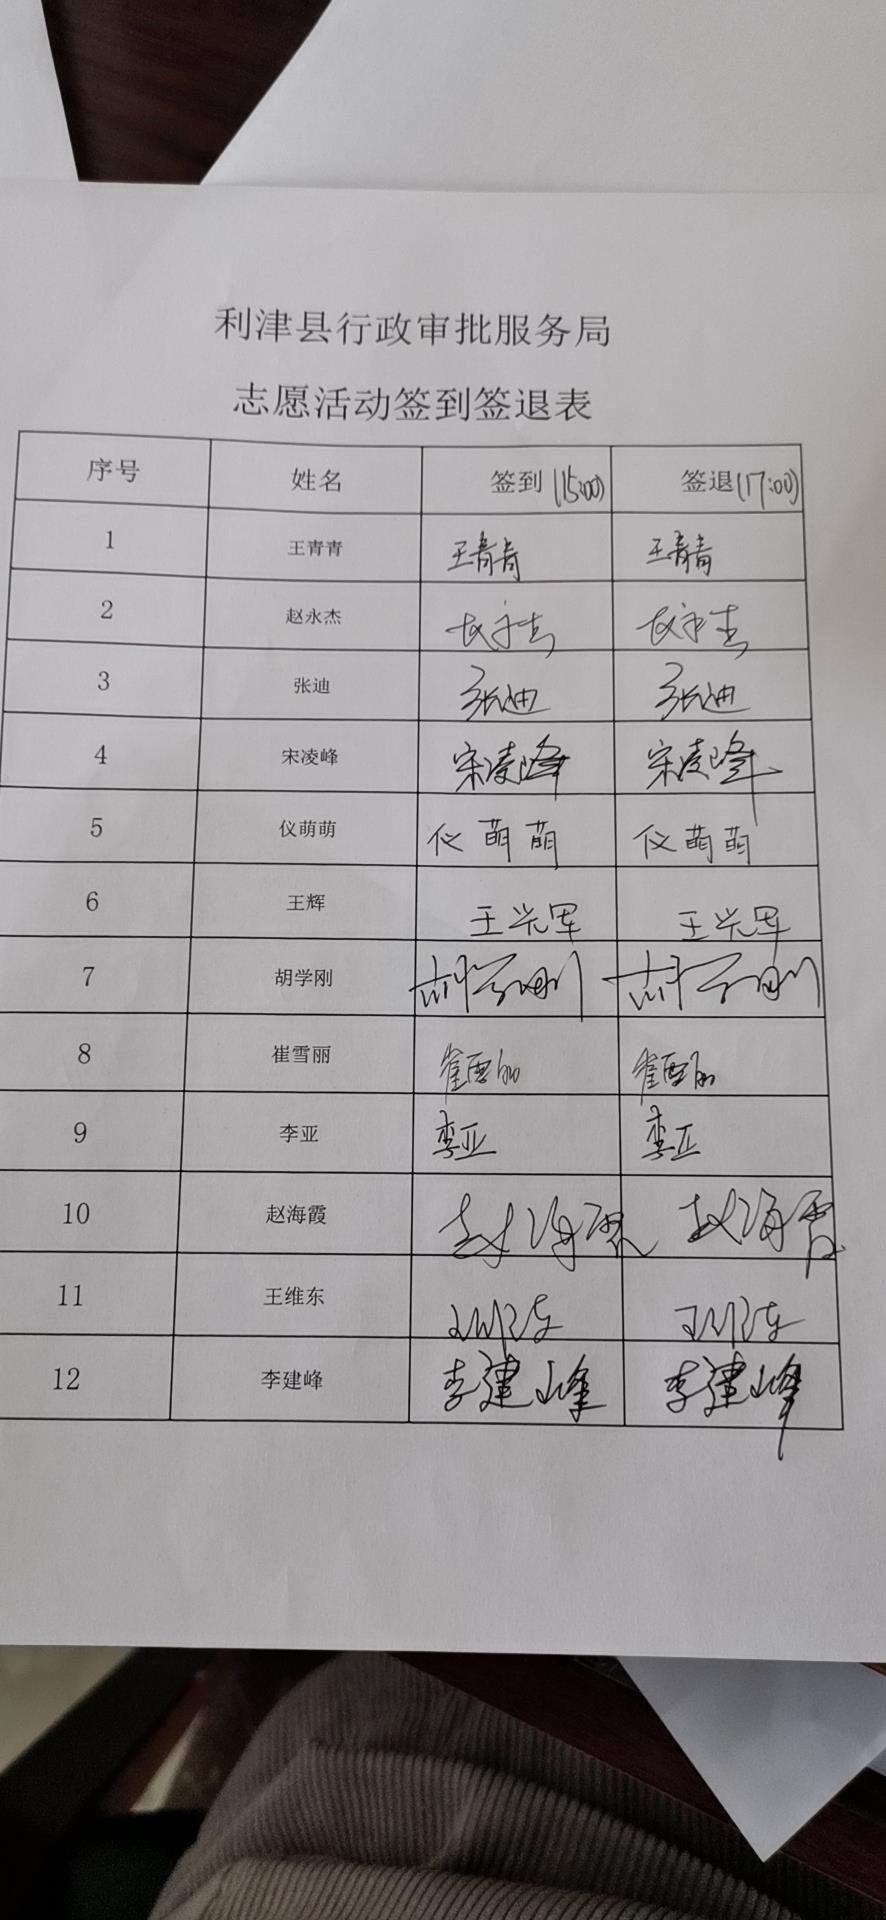 利津县行政审批服务局
志愿活动签到签退表
序号 姓名 签到(15:00) 签退(17:00)
1 王青青 王青青 王青青
2 赵永杰 赵永杰 赵永杰
3 张迪 张迪 张迪
4 宋凌峰 宋凌峰 宋凌峰
5 仪萌萌 仪萌萌 仪萌萌
6 王辉 王光军 王光军
7 胡学刚 胡学刚 胡学刚
8 崔雪丽 崔雪丽 崔雪丽
9 李亚 李亚 李亚
10 赵海霞 赵海霞 赵海霞
11 王维东 王维东 王维东
12 李建峰 李建峰 李建峰